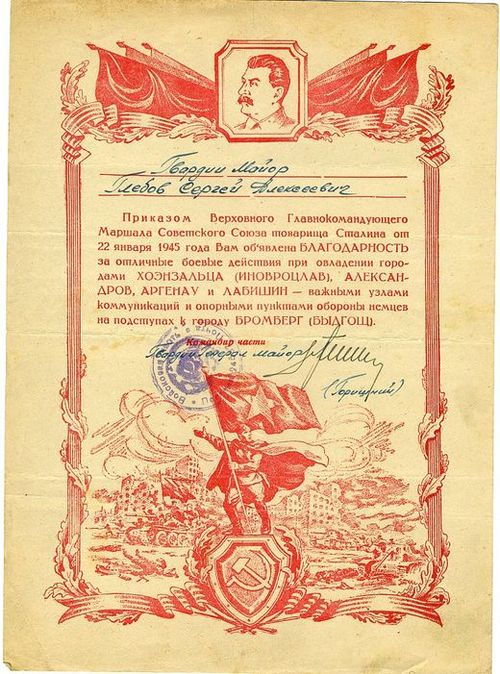 Гвардии Майор
Глебов Сергей Алексеевич
Приказом Верховного Главнокомандующего
Маршала Советского Союза товарища Сталина от
22 января 1945 года Вам об'явлена БЛАГОДАРНОСТЬ
за отличные боевые действия при овладении горо-
дами ХОЭНЗАЛЬЦА (ИНОВРОЦЛАВ), АЛЕКСАН-
ДРОВ, АРГЕНАУ и ЛАБИШИН — важными узлами
коммуникаций и опорными пунктами обороны немцев
на подступах к городу БРОМБЕРГ (БЫДГОЩ).
Командир части
Гвардии Генерал майор
(Горишний)